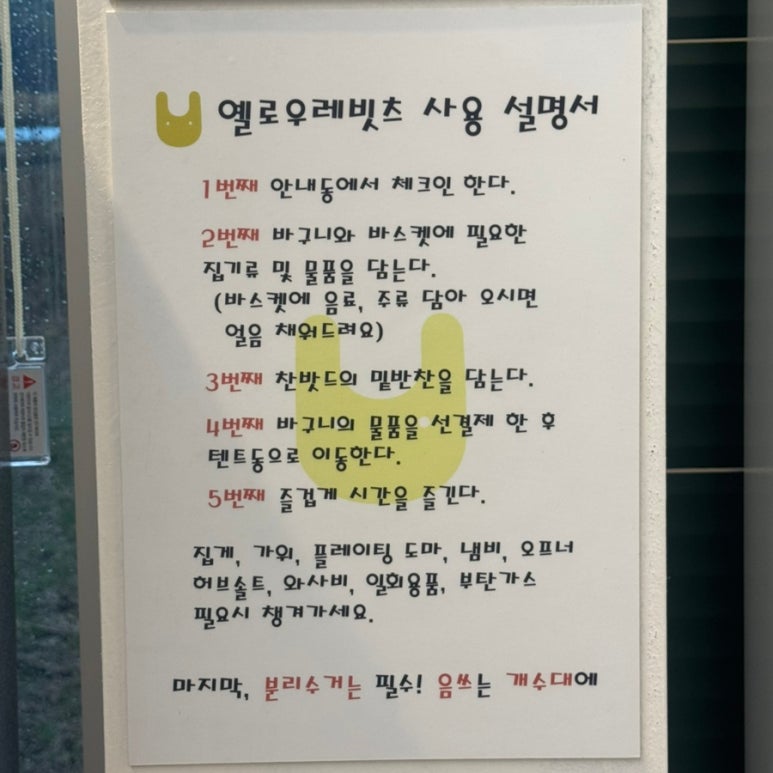 옐로우레빗츠 사용 설명서
1번째 안내동에서 체크인 한다.
2번째 바구니와 바스켓에 필요한
집기류 및 물품을 담는다.
(바스켓에 음료, 주류 담아 오시면
얼음 채워드려요)
3번째 찬밧드의 밑반찬을 담는다.
4번째 바구니의 물품을 선결제 한 후
텐트동으로 이동한다.
5번째 즐겁게 시간을 즐긴다.
집게, 가위, 플레이팅 도마, 냄비, 오프너
허브솔트, 와사비, 일회용품, 부탄가스
필요시 챙겨가세요.
마지막, 분리수거는 필수! 음쓰는 개수대에